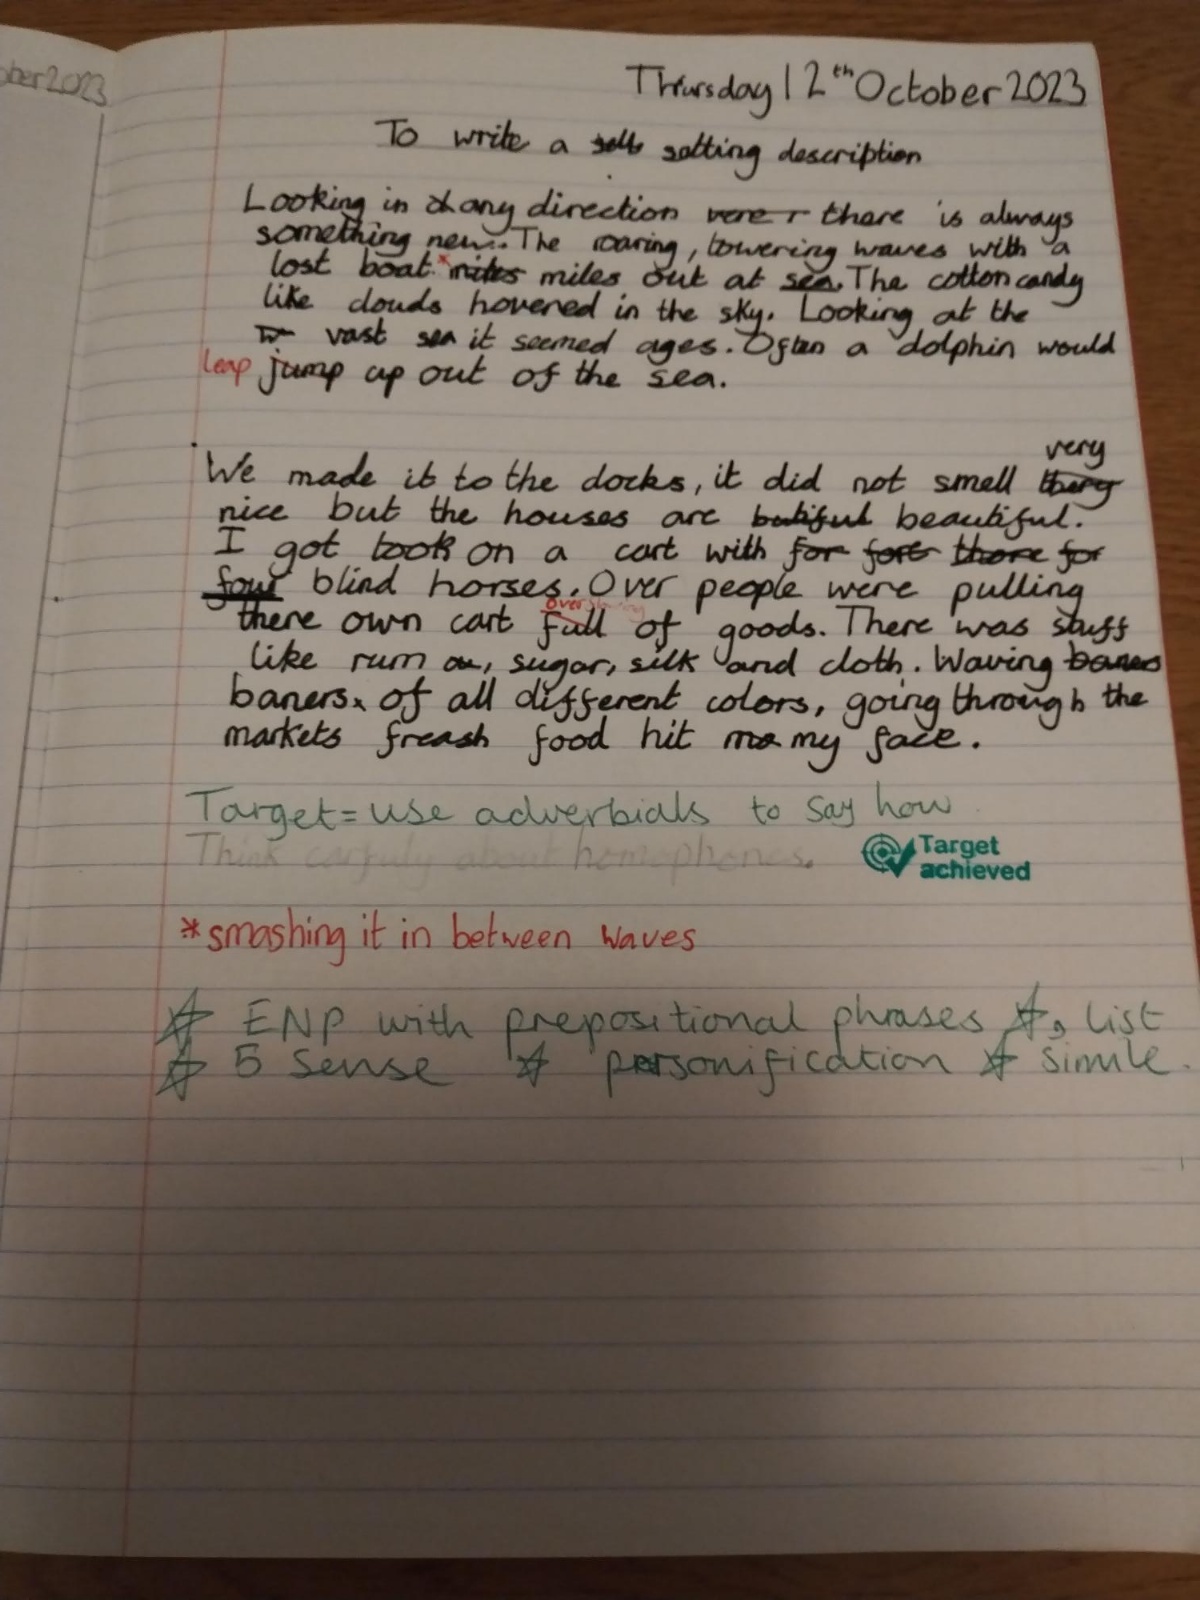 ober 2023
Thursday 12th October 2023
To write a setting description
Looking in any direction there is always
something new. The roaring, towering waves with a
lost boat * miles out at sea. The cotton candy
like clouds hovered in the sky. Looking at the
vast sea it seemed ages. Often a dolphin would
leap jump up out of the sea.
very
We made it to the docks, it did not smell
nice but the houses are beautiful.
I got took on a cart with
four blind horses. Over people were pulling
over
there own cart full of goods. There was stuff
like rum, sugar, silk and cloth. Waving
baners of all different colors, going through the
markets freash food hit my face.
Target = use adverbials to say how
Think carfuly about homophones.
Target
achieved
*smashing it in between waves
☆ ENP with prepositional phrases ☆ , list
☆ 5 Sense ☆ personification ☆ simile.